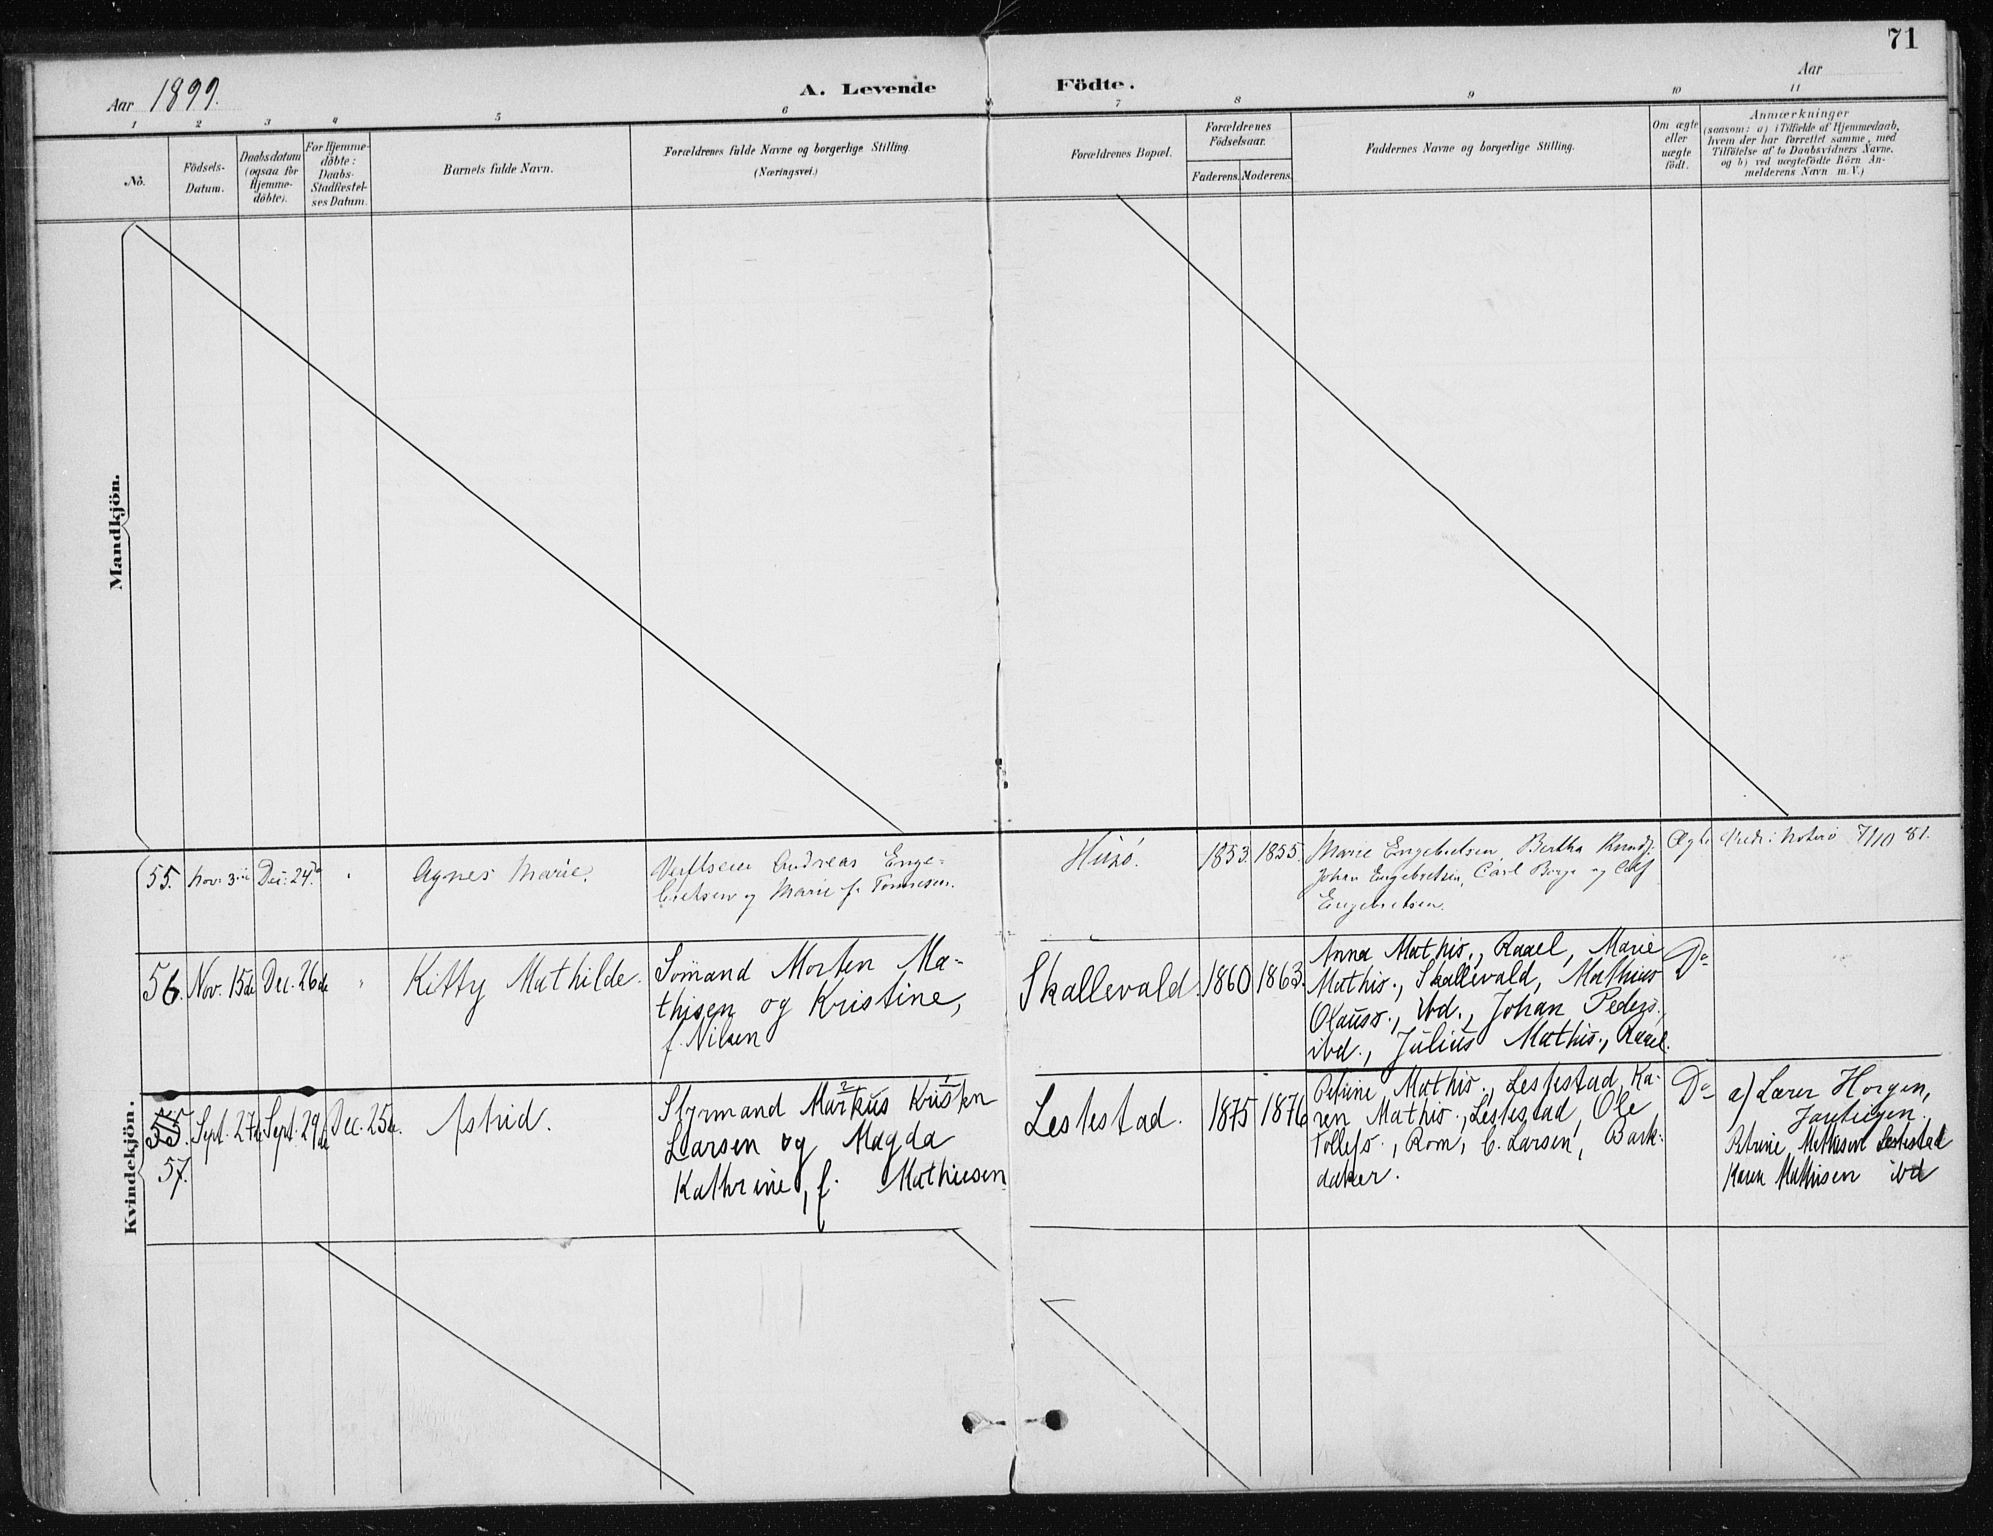 71
Aar 1899.
A. Levende Födte.
Aar
1 2 3 4 5 6 7 8 9 10 11
No.
Födsels-
Datum.
Daabsdatum
(ogsaa for
Hjemme-
döbte).
For Hjemme-
döbte:
Daabs-
Stadfæstel-
ses Datum.
Barnets fulde Navn.
Forældrenes fulde Navne og borgerlige Stilling
(Næringsvei.)
Forældrenes Bopæl.
Forældrenes
Födselsaar.
Faderens. Moderens.
Faddernes Navne og borgerlige Stilling.
Om ægte
eller
uægte
födt.
Anmærkninger
(saasom: a) i Tilfælde af Hjemmedaab,
hvem der har forrettet samme, med
Tilföielse af to Daabsvidners Navne,
og b) ved uægtefödte Börn An-
melderens Navn m. V.)
Mandkjön.
Kvindekjön.
55.
Nov. 3
Dec. 24
"
Agnes Marie.
Verftseier Andreas Enge-
bretsen og Marie f. Tønnesen.
Husø.
1853. 1855.
Marie Engebretsen, Bertha
Johan Engebretsen, Carl Borge og
Engebretsen.
Ægte
Nøterø 7/10 81.
56.
Nov. 15de
Dec. 26de
"
Kitty Mathilde.
Sömand Morten Ma-
thisen og Kristine,
f. Nilsen
Skallevald.
1860 1863.
Anna Mathis., Raael, Marie
Mathis., Skallevald, Mathias
Olauss., ibd., Johan Peders.,
ibd., Julius Mathis., Raael.
Do
55
57.
Sept. 27de
Sept. 29de
Dec. 25de.
Astrid.
2 1
Styrmand Markus Kristen
Larsen og Magda
Kathrine, f. Mathiesen
Lestestad.
1875 1876
Petrine Mathis., Lestestad, Ka-
ren Mathis., Lestestad, Ole
Tollefs., Rom, C. Larsen, Bark-
daker.
Do
a) Lærer Horgen,
Petrine Mathisen Lestestad
Karen Mathisen ibd